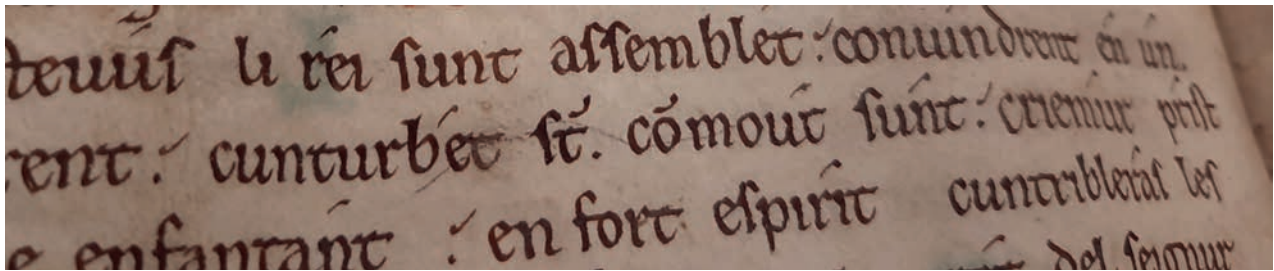 li rei sunt assemblet: conuindrent en un.
rent: cunturbet st̄. cōmout sunt: criemur prist
enfantant: en fort espirit cuntribleras les
del seignur